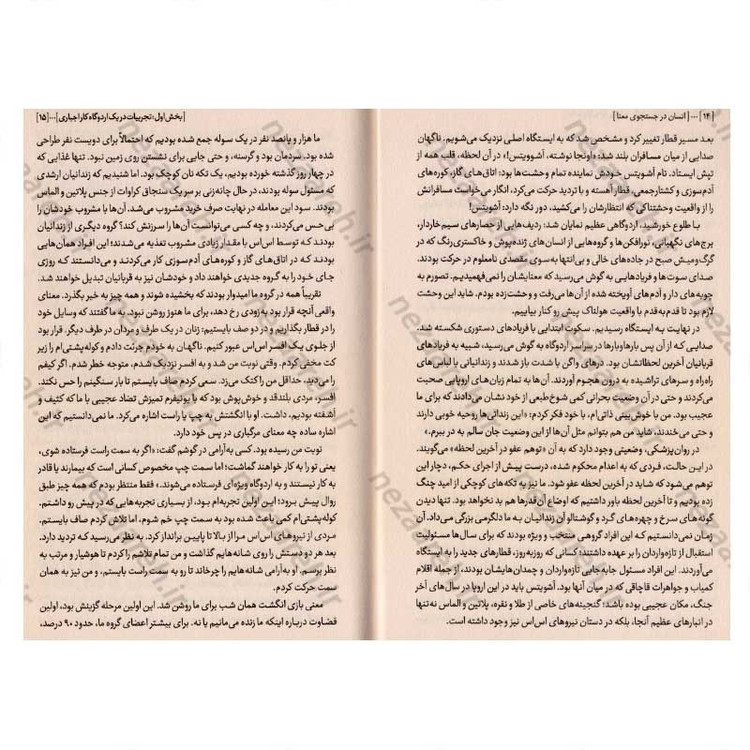 [۱۴] ... [انسان در جستجوی معنا]
بعد مسیر قطار تغییر کرد و مشخص شد که به ایستگاه اصلی نزدیک می‌شویم. ناگهان
صدایی از میان مسافران بلند شد: «اونجا نوشته، آشوویتس!» در آن لحظه، قلب همه از
تپش ایستاد. نام آشویتس خودش نماینده تمام وحشت‌ها بود: اتاق‌های گاز، کوره‌های
آدم‌سوزی و کشتارجمعی. قطار آهسته و با تردید حرکت می‌کرد، انگار می‌خواست مسافرانش
را از واقعیت وحشتناکی که انتظارشان را می‌کشید، دور نگه دارد: آشویتس!
با طلوع خورشید، اردوگاهی عظیم نمایان شد: ردیف‌هایی از حصارهای سیم خاردار،
برج‌های نگهبانی، نورافکن‌ها و گروه‌هایی از انسان‌های ژنده‌پوش و خاکستری‌رنگ که در
گرگ‌ومیش صبح در جاده‌های خالی و بی‌انتها به‌سوی مقصدی نامعلوم در حرکت بودند.
صدای سوت‌ها و فریادهایی به گوش می‌رسید که معنایشان را نمی‌فهمیدیم. تصورم به
چوبه‌های دار و آدم‌های آویخته شده از آن‌ها می‌رفت و وحشت‌زده بودم. شاید این وحشت
لازم بود تا قدم‌به‌قدم با واقعیت هولناک پیش رو کنار بیاییم.
در نهایت به ایستگاه رسیدیم. سکوت ابتدایی با فریادهای دستوری شکسته شد.
صدایی که از آن پس بارهاوبارها در سراسر اردوگاه به گوش می‌رسید، شبیه به فریادهای
قربانیان آخرین لحظاتشان بود. درهای واگن با شدت باز شدند و زندانیانی با لباس‌های
راه‌راه و سرهای تراشیده به درون هجوم آوردند. آن‌ها به تمام زبان‌های اروپایی صحبت
می‌کردند و حتی در آن وضعیت بحرانی کمی شوخ‌طبعی از خود نشان می‌دادند که برای ما
عجیب بود. من با خوش‌بینی ذاتی‌ام، با خود فکر کردم: «این زندانی‌ها روحیه خوبی دارند
و حتی می‌خندند، شاید من هم بتوانم مثل آن‌ها از این وضعیت جان سالم به در ببرم.»
در روان‌پزشکی، وضعیتی وجود دارد که به آن «توهم عفو در آخرین لحظه» می‌گویند.
در این حالت، فردی که به اعدام محکوم شده، درست پیش از اجرای حکم، دچار این
توهم می‌شود که شاید در آخرین لحظه عفو شود. ما نیز به تکه‌های کوچکی از امید چنگ
زده بودیم و تا آخرین لحظه باور داشتیم که اوضاع آن‌قدرها هم بد نخواهد بود. تنها دیدن
گونه‌های سرخ و چهره‌های گرد و گوشتالو آن زندانیان به ما دلگرمی بزرگی می‌داد. آن
زمان نمی‌دانستیم که این افراد گروهی منتخب و ویژه بودند که برای سال‌ها مسئولیت
استقبال از تازه‌واردان را بر عهده داشتند؛ کسانی که روزبه‌روز، قطارهای جدید را به ایستگاه
می‌آوردند. این افراد مسئول جابه‌جایی تازه‌واردان و چمدان‌هایشان بودند، از جمله اقلام
کمیاب و جواهرات قاچاقی که در میان آنها بود. آشویتس باید در این اروپا در سال‌های آخر
جنگ، مکان عجیبی بوده باشد؛ گنجینه‌های خاصی از طلا و نقره، پلاتین و الماس نه‌تنها
در انبارهای عظیم آنجا، بلکه در دستان نیروهای اس‌اس نیز وجود داشته است.
[بخش اول: تجربیات در یک اردوگاه کار اجباری] ... [۱۵]
ما هزار و پانصد نفر در یک سوله جمع شده بودیم که احتمالاً برای دویست نفر طراحی
شده بود. سردمان بود و گرسنه، و حتی جایی برای نشستن روی زمین نبود. تنها غذایی که
در چهار روز گذشته خورده بودیم، یک تکه نان کوچک بود. اما شنیدیم که زندانیان ارشدی
که مسئول سوله بودند، در حال چانه‌زنی بر سر یک سنجاق کراوات از جنس پلاتین و الماس
بودند. سود این معامله در نهایت صرف خرید مشروب می‌شد. آن‌ها با مشروب خودشان را
بی‌حس می‌کردند، و چه کسی می‌توانست آن‌ها را سرزنش کند؟ گروه دیگری از زندانیان
بودند که توسط اس‌اس با مقدار زیادی مشروب تغذیه می‌شدند؛ این افراد همان‌هایی
بودند که در اتاق‌های گاز و کوره‌های آدم‌سوزی کار می‌کردند و می‌دانستند که روزی
جای خود را به گروه جدیدی خواهند داد و خودشان نیز به قربانیان تبدیل خواهند شد.
تقریباً همه در گروه ما امیدوار بودند که بخشیده شوند و همه چیز به خیر بگذرد. معنای
واقعی آنچه قرار بود به‌زودی رخ دهد، برای ما هنوز روشن نبود. به ما گفتند که وسایل خود
را در قطار بگذاریم و در دو صف بایستیم: زنان در یک طرف و مردان در طرف دیگر. قرار بود
از جلوی یک افسر اس‌اس عبور کنیم. ناگهان به خودم جرئت دادم و کوله‌پشتی‌ام را زیر
کت مخفی کردم. وقتی نوبت من شد و به افسر نزدیک شدم، متوجه خطر شدم. اگر کیفم
را می‌دید، حداقل من را کتک می‌زد. سعی کردم صاف بایستم تا بار سنگینم را حس نکند.
افسر، مردی بلندقد و خوش‌پوش بود که با یونیفرم تمیزش تضاد عجیبی با ما که کثیف و
آشفته بودیم، داشت. او با انگشتش به چپ یا راست اشاره می‌کرد. ما نمی‌دانستیم که این
اشاره ساده چه معنای مرگباری در پس خود دارد.
نوبت من رسیده بود. کسی به‌آرامی در گوشم گفت: «اگر به سمت راست فرستاده شوی،
یعنی تو را به کار خواهند گماشت؛ اما سمت چپ مخصوص کسانی است که بیمارند یا قادر
به کار نیستند، و به اردوگاه ویژه‌ای فرستاده می‌شوند.» فقط منتظر بودم که همه چیز طبق
روال پیش برود؛ این اولین تجربه‌ام بود، از بسیاری تجربه‌هایی که در پیش رو داشتم.
کوله‌پشتی‌ام کمی باعث شده بود به سمت چپ خم شوم، اما تلاش کردم صاف بایستم.
مردی از نیروهای اس‌اس مرا از بالا تا پایین برانداز کرد. به نظر می‌رسید که تردید دارد.
بعد هر دو دستش را روی شانه‌هایم گذاشت و من تمام تلاشم را کردم تا هوشیار و مرتب به
نظر برسم. او به آرامی شانه‌هایم را چرخاند تا رو به سمت راست بایستم، و من نیز به همان
سمت حرکت کردم.
معنی بازی انگشت همان شب برای ما روشن شد. این اولین مرحله گزینش بود، اولین
قضاوت درباره اینکه ما زنده می‌مانیم یا نه. برای بیشتر اعضای گروه ما، حدود ۹۰ درصد،